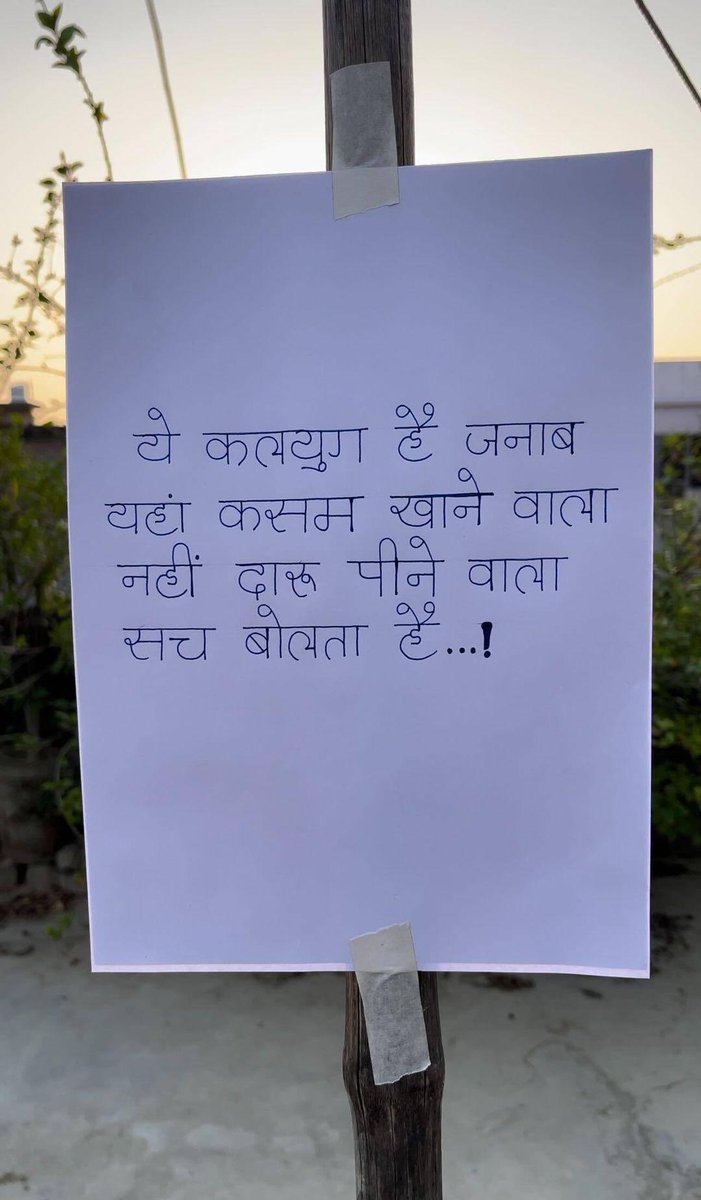 ये कलयुग है जनाब
यहां कसम खाने वाला
नहीं दारू पीने वाला
सच बोलता है...!